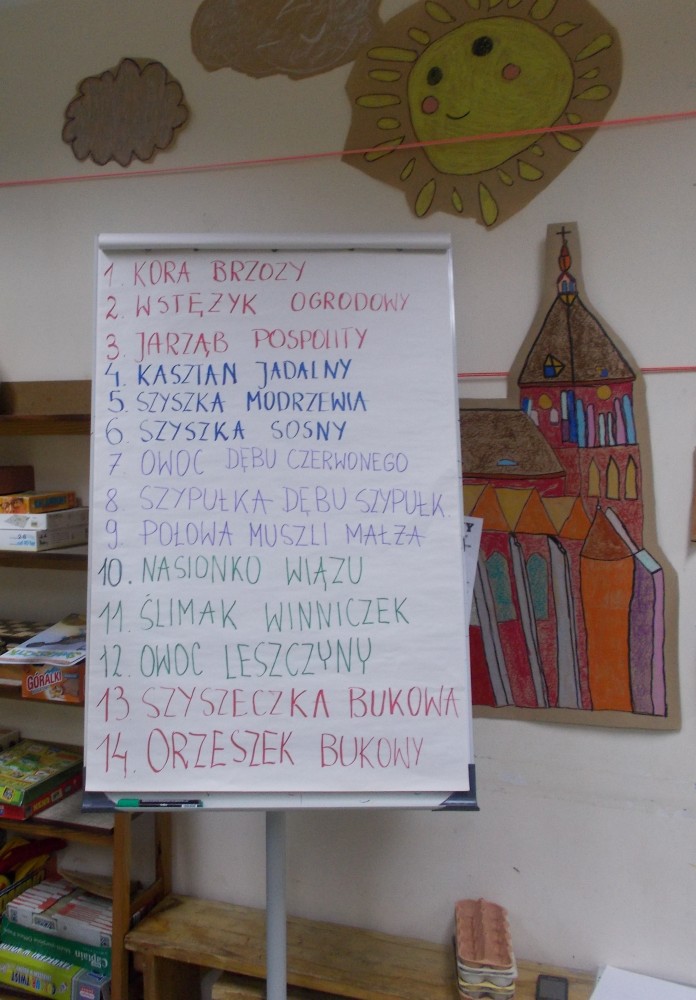 1. KORA BRZOZY
2. WSTĘŻYK OGRODOWY
3. JARZĄB POSPOLITY
4. KASZTAN JADALNY
5. SZYSZKA MODRZEWIA
6. SZYSZKA SOSNY
7 OWOC DĘBU CZERWONEGO
8 SZYPUŁKA DĘBU SZYPUŁK.
9. POŁOWA MUSZLI MAŁŻA
10. NASIONKO WIĄZU
11. ŚLIMAK WINNICZEK
12. OWOC LESZCZYNY
13 SZYSZECZKA BUKOWA
14. ORZESZEK BUKOWY
GÓRALKI
captain